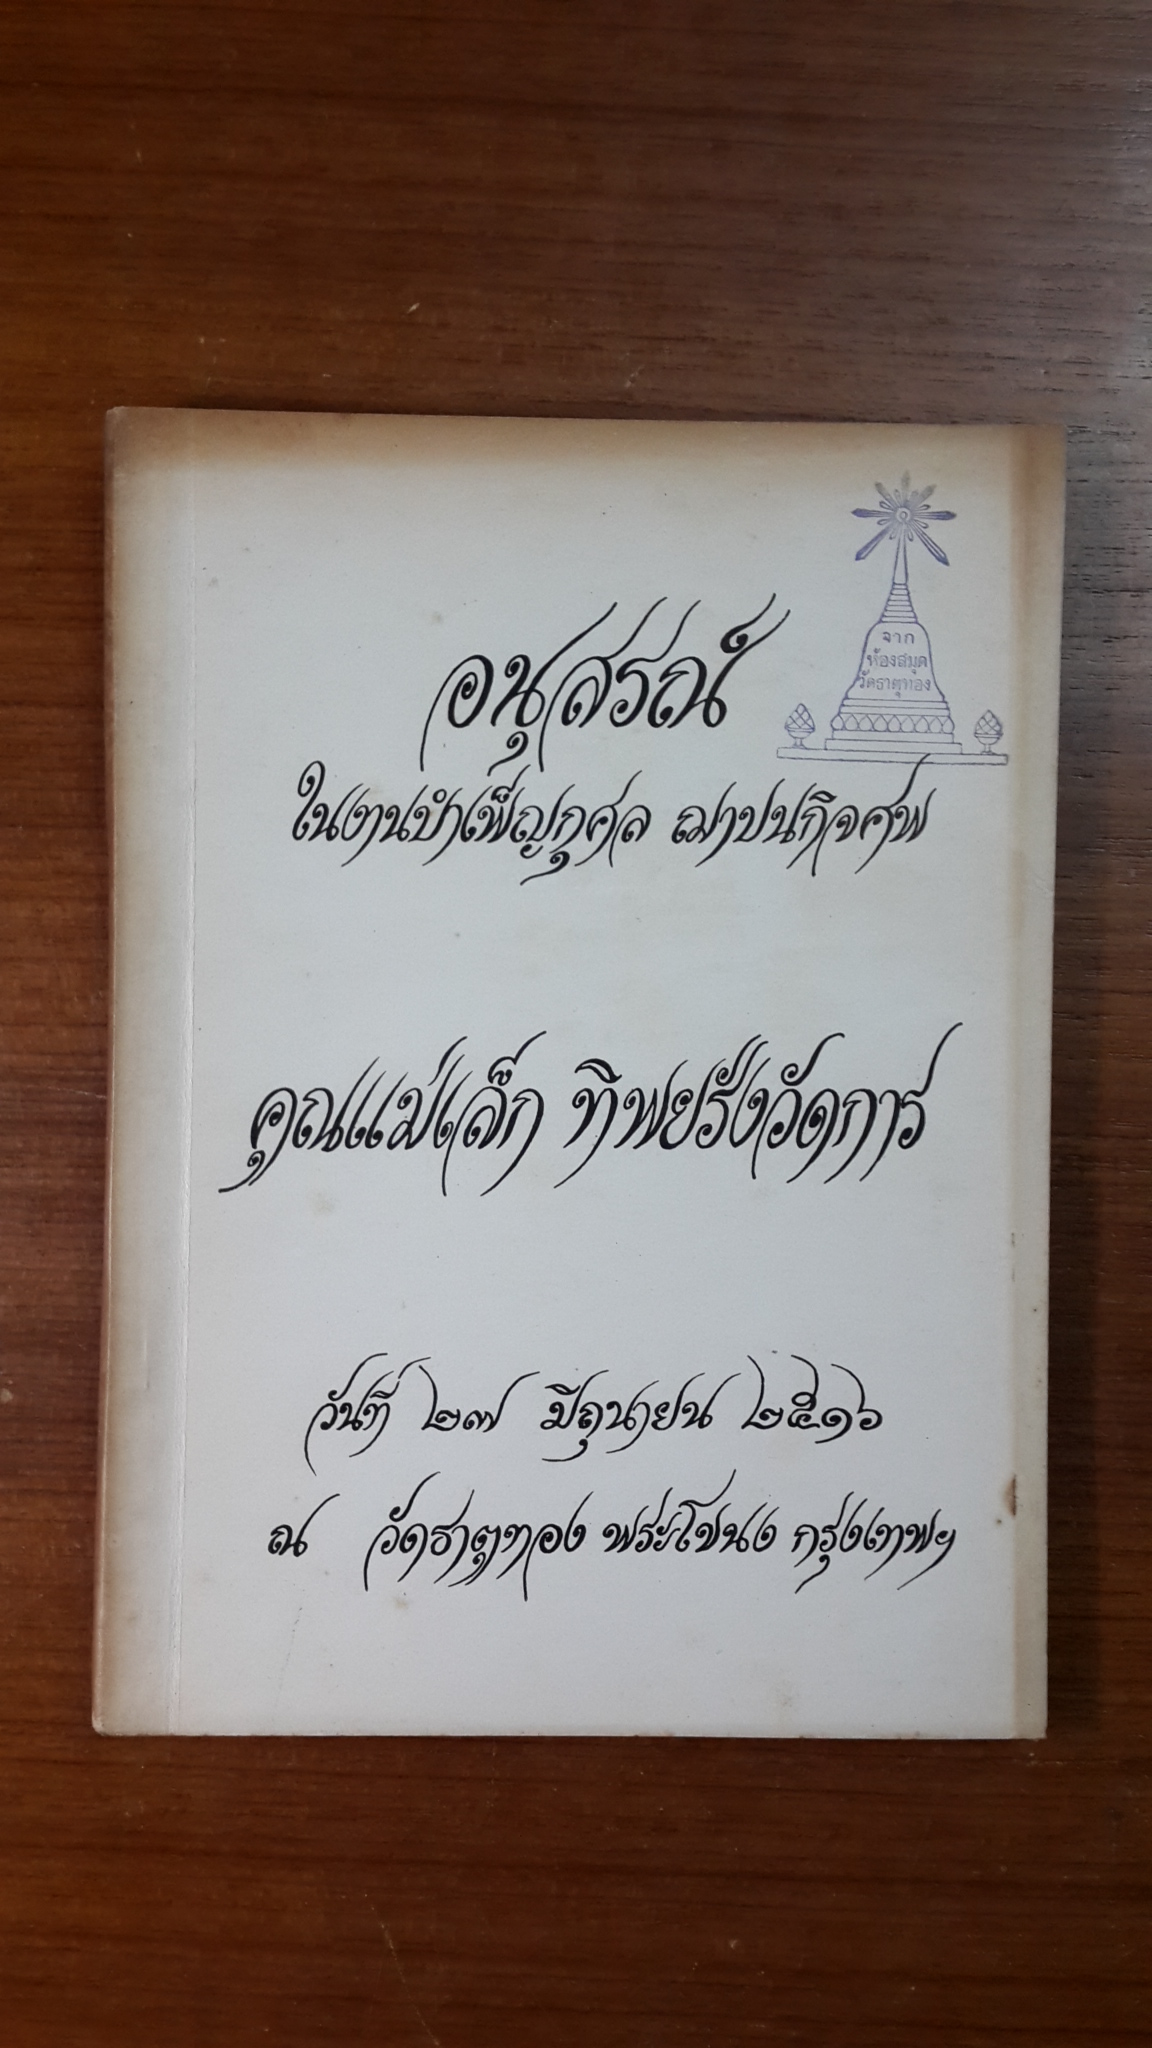 จาก
ห้องสมุด
วัดธาตุทอง
อนุสรณ์
ในงานบำเพ็ญกุศล ฌาปนกิจศพ
คุณแม่เล็ก ทิพยรังวัดการ
วันที่ ๒๗ มิถุนายน ๒๕๑๖
ณ วัดธาตุทอง พระโขนง กรุงเทพฯ